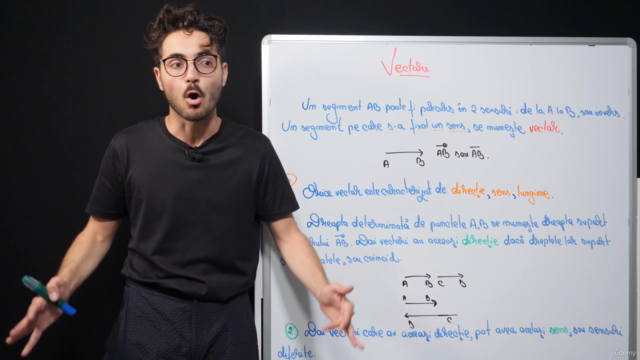 Vectori
Un segment AB poate fi parcurs în 2 sensuri: de la A la B, sau invers.
Un segment pe care s-a fixat un sens, se numește vector.
A B AB sau AB.
Orice vector este caracterizat de direcție, sens, lungime.
Dreapta determinată de punctele A,B se numește dreapta suport
AB. Doi vectori au aceeași direcție dacă dreptele lor suport
sau coincid.
A B C D
A B
D C
2 Doi vectori care au aceeași direcție, pot avea același sens, sau sensuri
diferite.
udemy